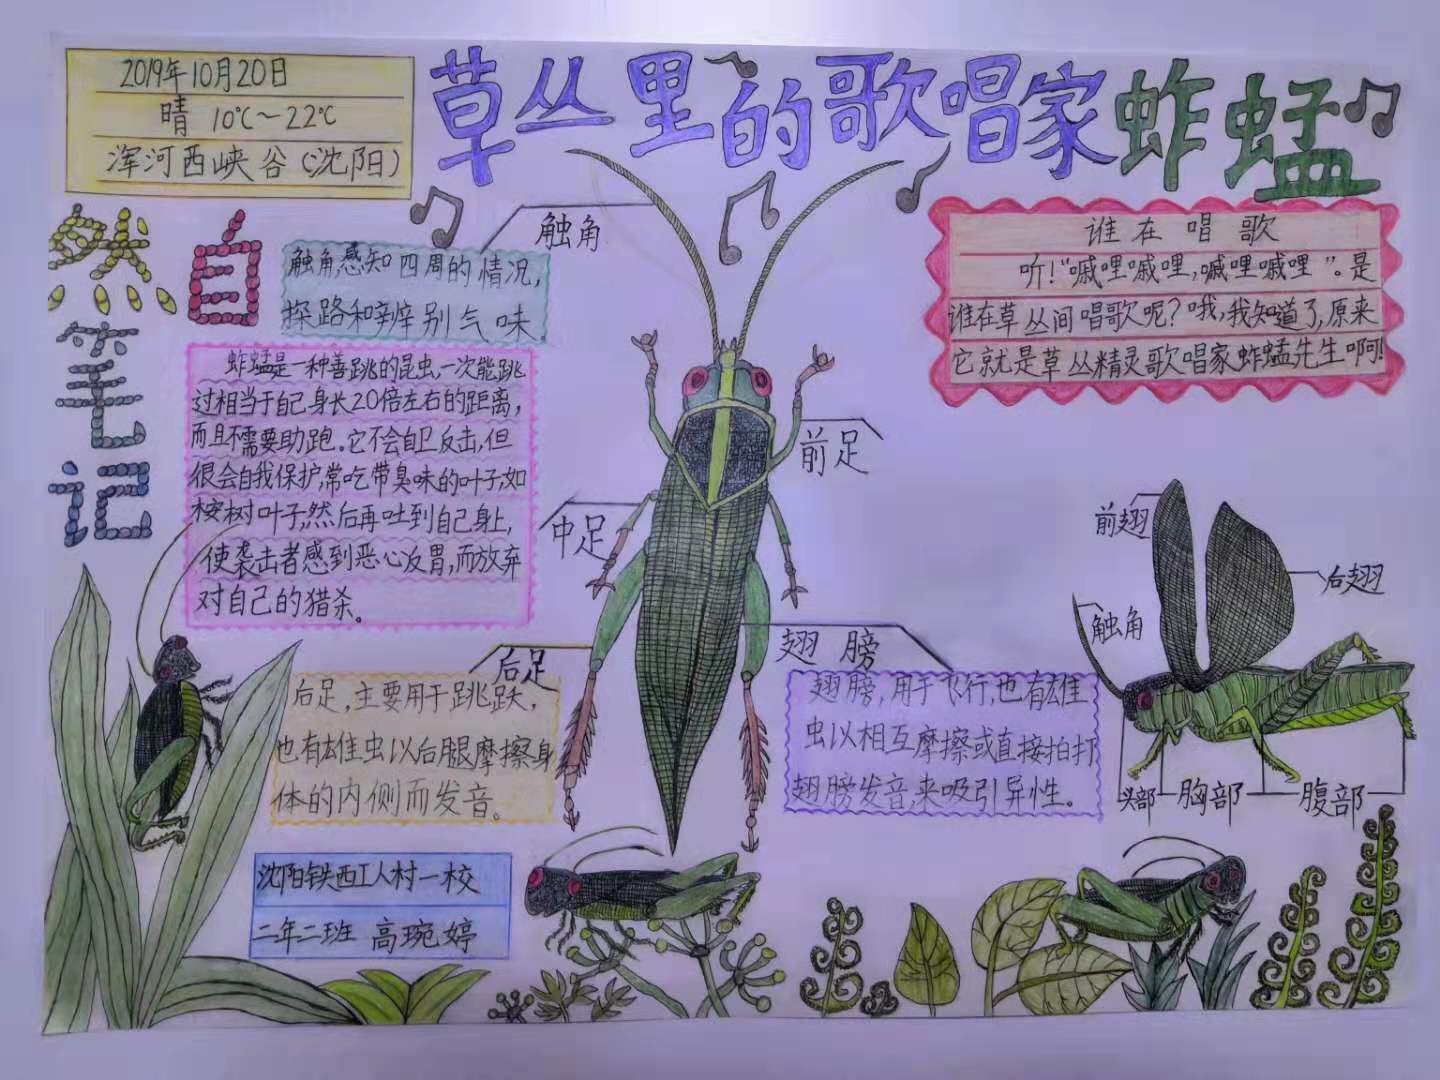 2019年10月20日
晴 10℃~22℃
浑河西峡谷(沈阳)
草丛里的歌唱家蚱蜢
自然
笔记
触角
触角感知四周的情况,
探路和辨别气味.
谁在唱歌
听!“嘁哩嘁哩,嘁哩嘁哩”。是
谁在草丛间唱歌呢?哦,我知道了,原来
它就是草丛精灵歌唱家蚱蜢先生啊!
蚱蜢是一种善跳的昆虫,一次能跳
过相当于自己身长20倍左右的距离,
而且不需要助跑。它不会自卫反击,但
很会自我保护,常吃带臭味的叶子,如
桉树叶子,然后再吐到自己身上,
使袭击者感到恶心反胃,而放弃
对自己的猎杀。
前足
中足
后足
后足,主要用于跳跃,
也有雄虫以后腿摩擦身
体的内侧而发音。
翅膀
翅膀,用于飞行,也有雄
虫以相互摩擦或直接拍打
翅膀发音,来吸引异性。
前翅
后翅
触角
头部 胸部 腹部
沈阳铁西工人村一校
二年二班 高琬婷